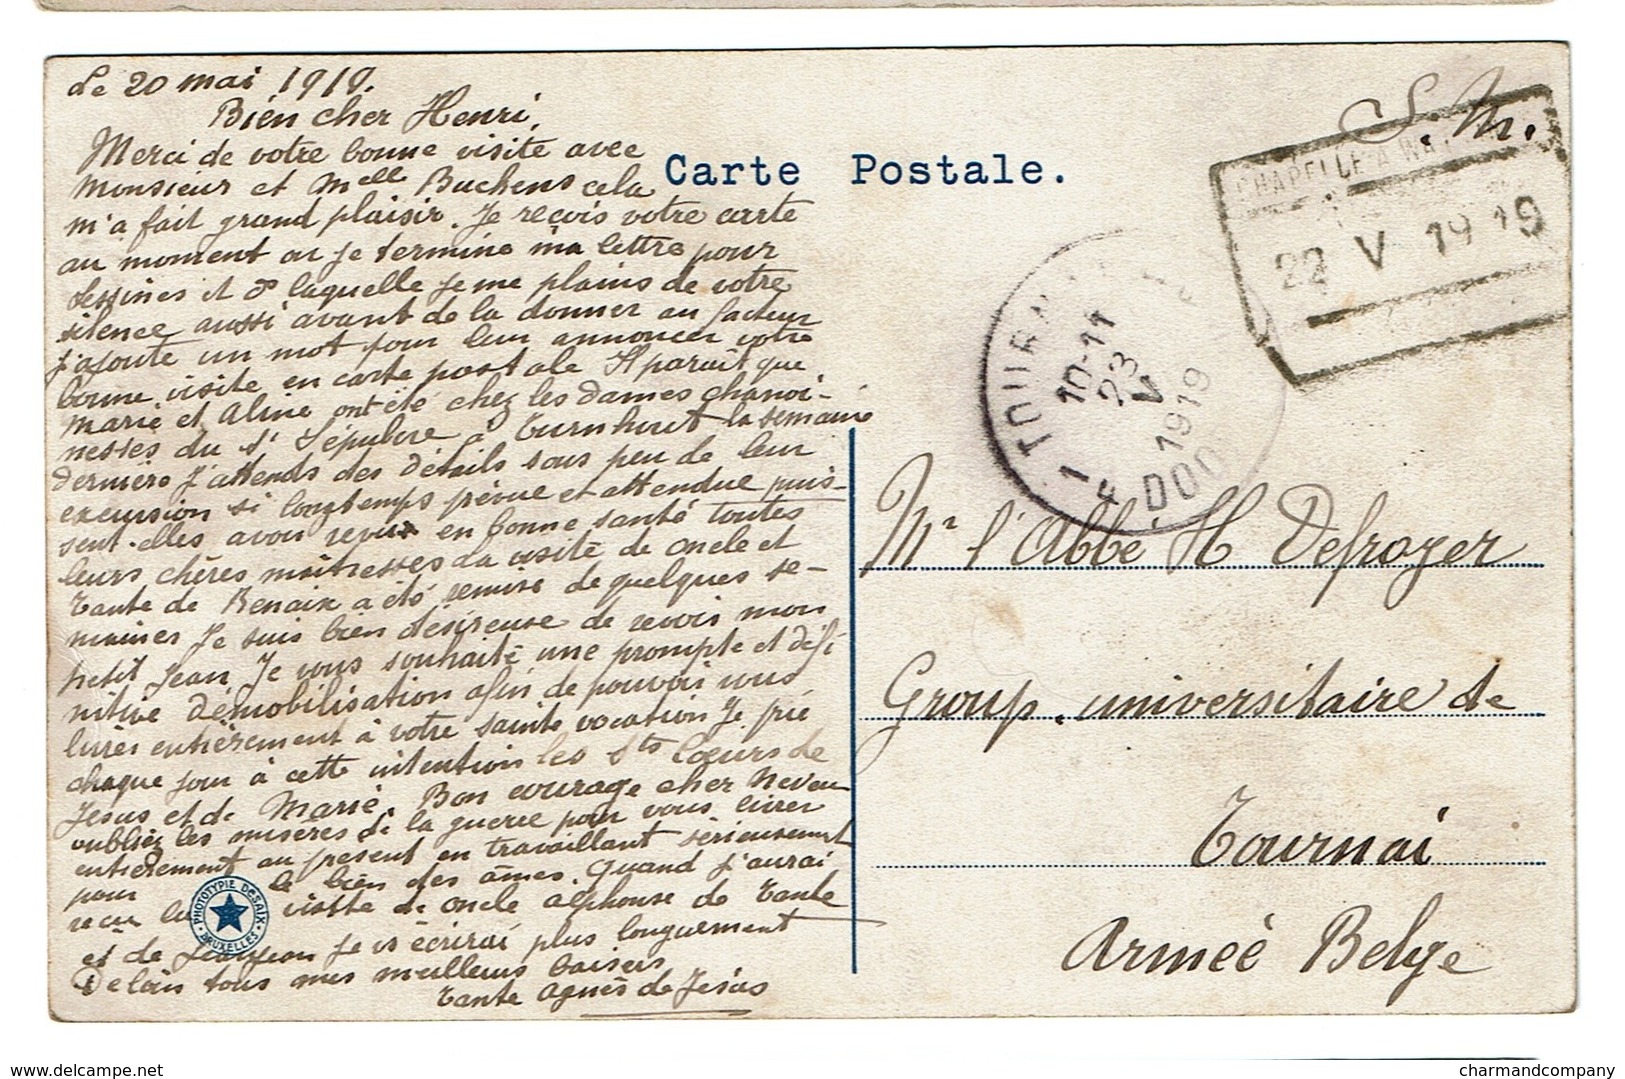 Le 20 mai 1919.
Bien cher Henri,
Merci de votre bonne visite avec
Monsieur et Melle Buchens cela
m'a fait grand plaisir. Je reçois votre carte
au moment ou je termine ma lettre pour
Lessines et ds laquelle je me plains de votre
silence aussi avant de la donner au facteur
j'ajoute un mot pour leur annoncer votre
bonne visite en carte postale Il paraît que
Marie et Aline ont été chez les Dames chanoi-
nesses du St Sépulcre à Turnhout la semaine
dernière J'attends des détails sous peu de leur
excursion si longtemps prévue et attendue puis-
sent-elles avoir revu en bonne santé toutes
leurs chères maîtresses La visite de oncle et
tante de Renaix a été remise de quelques se-
maines Je suis bien désireuse de revoir mon
petit Jean Je vous souhaite une prompte et défi
nitive démobilisation afin de pouvoir vous
livrer entièrement à votre sainte vocation Je prie
chaque jour à cette intention les Sts Cœurs de
Jésus et de Marie. Bon courage cher Neveu
oubliez les misères de la guerre pour vous livrer
entièrement au présent en travaillant sérieusement
pour le bien des âmes. Quand j'aurai
reçu la visite de oncle Alphonse de tante
et de Jeanjean je vs écrirai plus longuement
De loin tous mes meilleurs baisers
Tante Agnès de Jésus
PHOTOTYPIE DESAIX
BRUXELLES
Carte Postale.
S.M.
CHAPELLE-A-WA
22 V 1919
TOURNAI 1
10-11
23
V
1919
DOO
Mr l'Abbé H Defroyer
Group. universitaire de
Tournai
Armée Belge
charmandcompany
delcampe.net